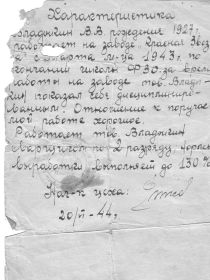 Характеристика
Владыкин В.В. рождения 1927,
работает на заводе "Красная Звез
да" с марта м-ца 1943, по
окончании школы ФЗО. За время
работы на заводе тов. Влады
кин показал себя дисциплиниро-
ванным. Отношение к поручае
мой работе хорошее.
Работает тов. Владыкин
сварщиком по 2 разряду. Нормы
выработки выполняет до 130%
Нач-к цеха:
20/I-44г.